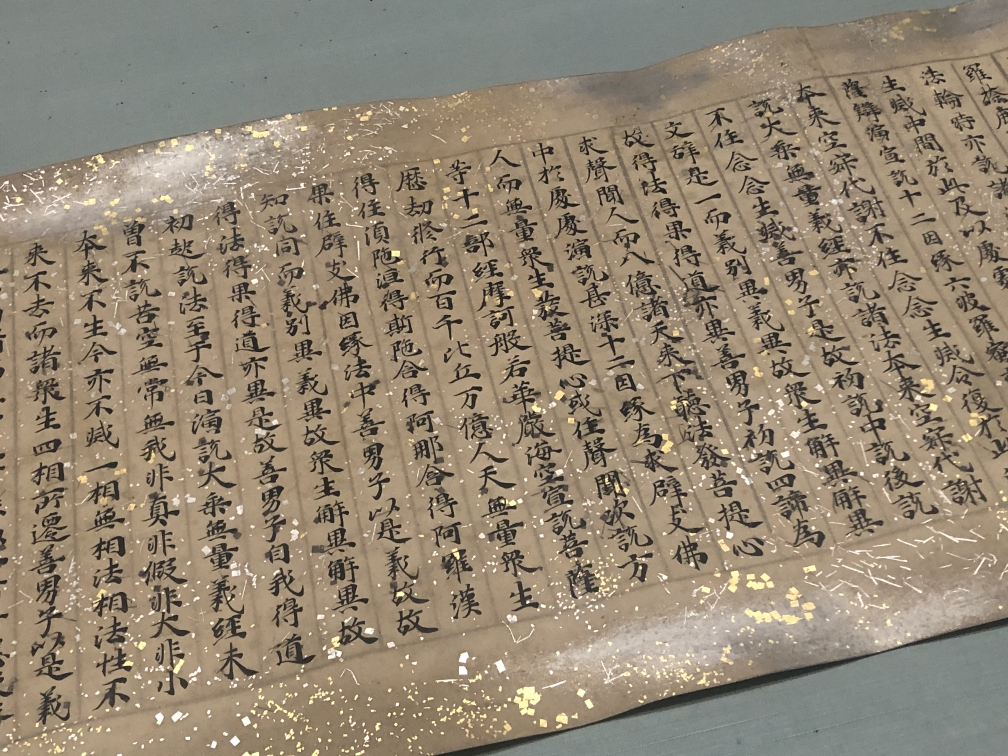 羅捺
法輪時亦說諸
生滅中間於此及以處
薩辯演宣說十二因緣六波羅蜜
本来空寂代謝不住念念生滅今復於此
說大乘無量義經亦說諸法本来空寂代謝
不住念念生滅善男子是故初說中說後說
文辭是一而義別異義異故衆生解異解異
故得法得果得道亦異善男子初說四諦為
求聲聞人而八億諸天来下聽法發菩提心
中於處處演說甚深十二因緣為求辟支佛
人而無量衆生發菩提心或住聲聞次說方
等十二部經摩訶般若華嚴海空宣說菩薩
歷劫修行而百千比丘万億人天無量衆生
得住須陁洹得斯陁含得阿那含得阿羅漢
果住辟支佛因緣法中善男子以是義故故
知說同而義別異義異故衆生解異解異故
得法得果得道亦異是故善男子自我得道
初起說法至于今日演說大乘無量義經未
曾不說苦空無常無我非真非假非大非小
本来不生今亦不滅一相無相法相法性不
来不去而諸衆生四相所遷善男子以是義